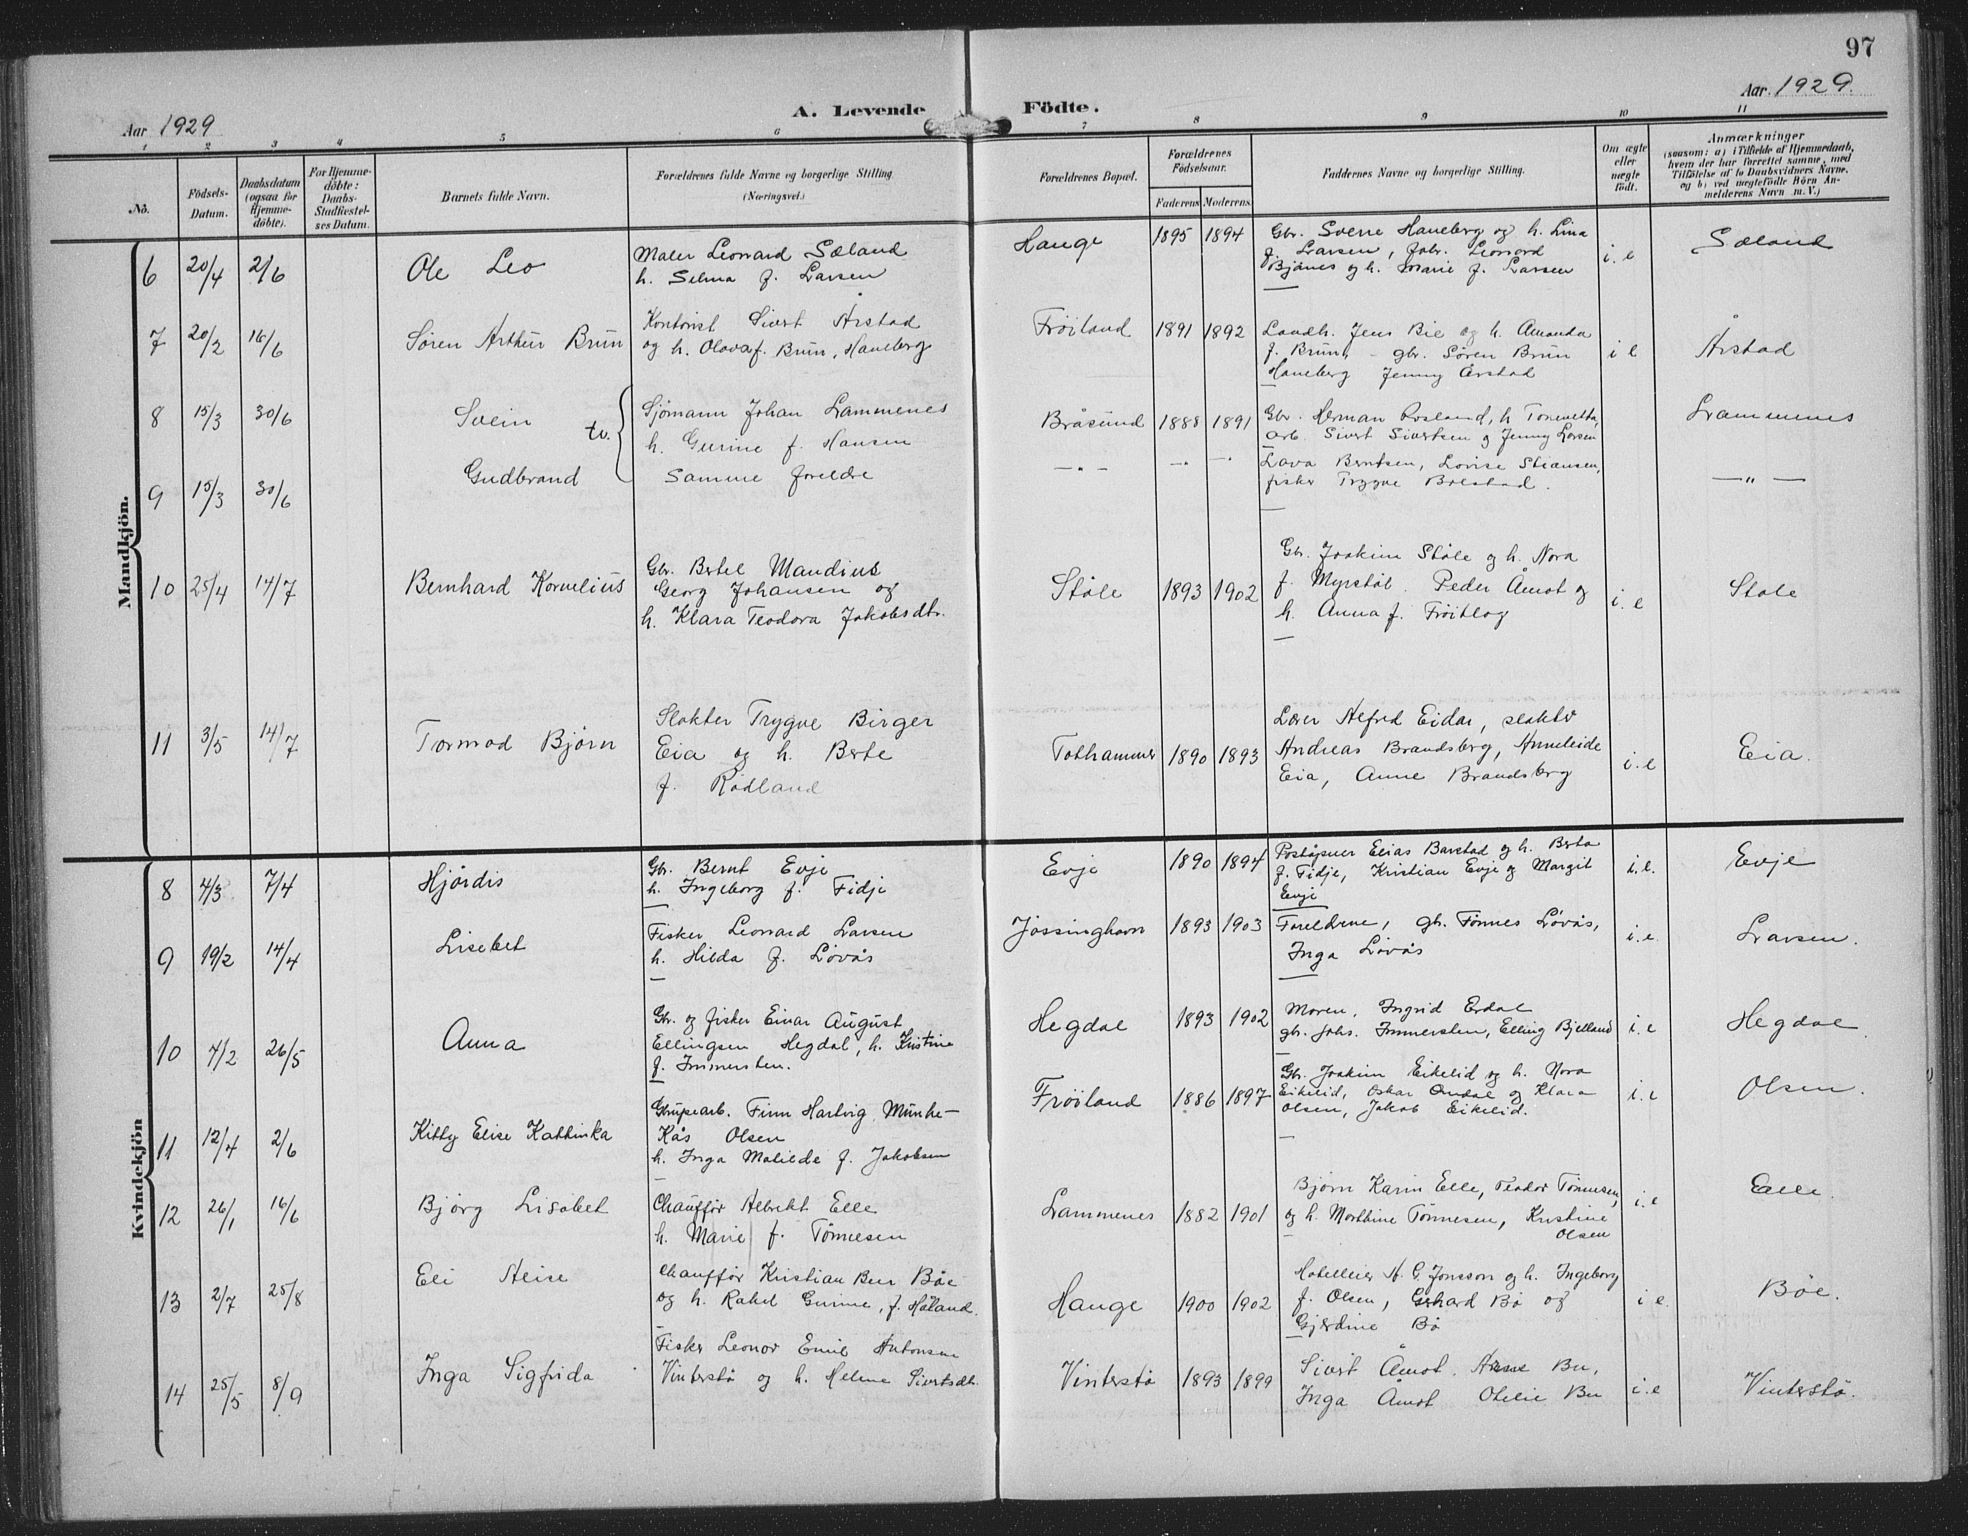 97
Aar 1929
A. Levende Födte.
Aar 1929.
1 2 3 4 5 6 7 8 9 10 11
No.
Födsels-Datum.
Daabsdatum (ogsaa for Hjemme-døbte).
For Hjemme-døbte: Daabs-Stadfæstel-ses Datum.
Barnets fulde Navn.
Forældrenes fulde Navne og borgerlige Stilling. (Næringsvei.)
Forældrenes Bopæl.
Forældrenes Födselsaar.
Faderens Moderens
Faddernes Navne og borgerlige Stilling.
Om ægte eller uægte født.
Anmærkninger
(saasom: a) i Tilfælde af Hjemmedaab, hvem der har forrettet samme, med Tilføielse af to Daabsvidners Navne, og b) ved uægtefødte Börn An-melderens Navn m. V.)
Mandkjön.
6 20/4 2/6 Ole Leo
Maler Leonard Sæland
h. Selma f. Larsen
Hauge 1895 1894
Gbr. Sverre Haneberg og h. Lina
f. Larsen, fabr. Leonard
Bjånes og h. Marie f. Larsen
i.e Sæland
7 20/2 16/6 Søren Arthur Brun
Kontorist Sivert Årstad
og h. Olava f. Brun, Haneberg
Frøiland 1891 1892
Landh. Jens Bie og h. Amanda
f. Brun, gbr. Søren Brun
Haneberg Jenny Årstad
i e Årstad
8 15/3 30/6 Svein tv.
Sjømann Johan Lammenes
h. Gurine f. Hansen
Bråsund 1888 1891
Gbr. Herman Rosland, h. Tonevetta,
arb. Sivert Sivertsen og Jenny Larsen
Lammenes
9 15/3 30/6 Gudbrand
Samme foreldre
— „ —
Lava Berntsen, Lovise Stiansen,
fisker Trygve Bolstad.
— „ —
10 25/4 14/7 Bernhard Kornelius
Gbr. Bertel Mandius
Georg Johansen og
h. Klara Teodora Jakobsdtr.
Støle 1893 1902
Gbr. Joakim Støle og h. Nora
f. Myrstøl. Peder Åmot og
h. Anna f. Frøitlog
i. e Støle
11 3/5 14/7 Tormod Bjørn
Slakter Trygve Birger
Eia og h. Berte
f. Rødland
Tothammer 1890 1893
Lærer Alfred Eidar, slakter
Andreas Brandsberg, Anneleide
Eia, Anne Brandsberg
i.e Eia.
Kvindekjön
8 4/3 7/4 Hjørdis
Gbr. Bernt Evje
h. Ingeborg f. Fidje
Evje 1890 1894
Poståpner Elias Barstad og h. Berta
f. Fidje, Kristian Evje og Margit
Evje
i.e. Evje
9 19/2 14/4 Lisebet
Fisker Leonard Larsen
h. Hilda f. Løvås
Jøssinghavn 1893 1903
Foreldrene, gbr. Tønnes Løvås,
Inga Løvås
i.e. Larsen.
10 7/2 26/5 Anna
Gbr. og fisker Einar August
Ellingsen Hegdal, h. Kristine
f. Immersten.
Hegdal 1893 1902
Moren, Ingrid Erdal
gbr. Johs. Immersten, Elling Bjelland
i. e Hegdal.
11 12/4 2/6 Kitty Elise Kathinka
Grupearb. Finn Hartvig Munke-
Kås Olsen
h. Inga Matilde f. Jakobsen
Frøiland 1886 1897
Gbr. Joakim Eikelid og h. Nora
Eikelid, Oskar Omdal og Klara
Olsen, Jakob Eikelid.
i. e Olsen.
12 26/1 16/6 Bjørg Lisabet
Chauffør Albrekt Elle
h. Marie f. Tønnesen
Lammenes 1882 1901
Bjørn Karin Elle, Teodor Tønnesen,
og h. Marthine Tønnesen, Kristine
Olsen
i.e Elle.
13 2/7 25/8 Eli Alise
Chauffør Kristian Ben Bøe
og h. Rakel Gurine, f. Høiland.
Hauge 1900 1902
Hotelleier A. G. Jonsson og h. Ingeborg
f. Olsen, Gerhard Bø og
Gjerdine Bø
i e. Bøe.
14 25/5 8/9 Inga Sigfrida
Fisker Leonor Emil Antonsen
Vinterstø og h. Helene Sivertsdtr.
Vinterstø 1893 1899
Sivert Åmot, Anne Bu,
Inga Åmot Otelie Bu
i.e Vinterstø.